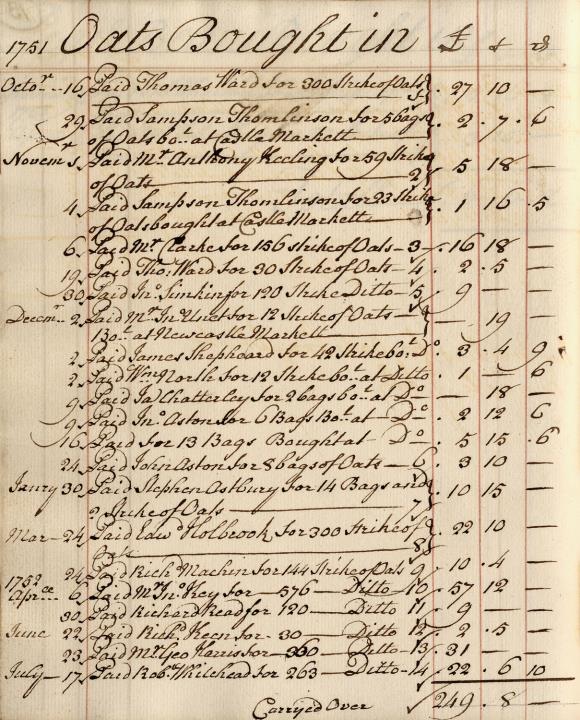 1751 Oats Bought in £ s d
Octor. 16 Paid Thomas Ward for 300 Strike of Oats 1 27 10 —
29 Paid Sampson Thomlinson for 5 bags 2 . 7 . 6
of Oats bot. at Castle Markett
Novemr. 1 Paid Mr. Anthony Keeling for 59 Strike 5 18 —
of Oats 2
4 Paid Sampson Thomlinson for 23 Strike 1 16 . 5
of Oats bought at Castle Markett
6 Paid Mr. Parke for 156 Strike of Oats — 3 . 16 18 —
19 Paid Tho. Ward for 30 Strike of Oats — 4 . 2 . 5 —
30 Paid Jno. Simkin for 120 Strike Ditto — 5 . 9 — —
Decemr. 2 Paid Mr. Jn. Unet for 12 Strike of Oats — 19 —
Bot. at Newcastle Markett
2 Paid James Shepheard for 42 Strike bot. Do. 3 . 4 9
2 Paid Wm. North for 12 Strike bot. at Ditto . 1 — 6
9 Paid Ja. Chatterley for 2 bags bot. at Do. — 18 —
9 Paid Jno. Aston for 6 Bags Bot. at — Do. . 2 12 6
16 Paid for 13 Bags Bought at — Do. . 5 15 . 6
24 Paid John Aston for 8 bags of Oats — 6 . 3 10 —
Janry 30 Paid Stephen Astbury for 14 Bags and . 10 15 —
2 Strike of Oats 7
Mar — 24 Paid Edwd. Holbrook for 300 Strike of . 22 10 —
Oats 8
24 Paid Richd. Machin for 144 Strike of Oats 9 . 10 . 4 —
1752
Aprill 6 Paid Mr. Jn. Key for — 576 — Ditto — 10 . 57 12 —
30 Paid Richard Read for 120 — Ditto 11 . 9 — —
June 22 Paid Richd. Keen for — 30 — Ditto 12 . 2 . 5 —
23 Paid Mr. Geo Harris for — 360 — Ditto — 13 . 31 —
July — 17 Paid Robt. Whitehead for 263 — Ditto — 14 . 22 . 6 10
Carryed Over 249 . 8 —